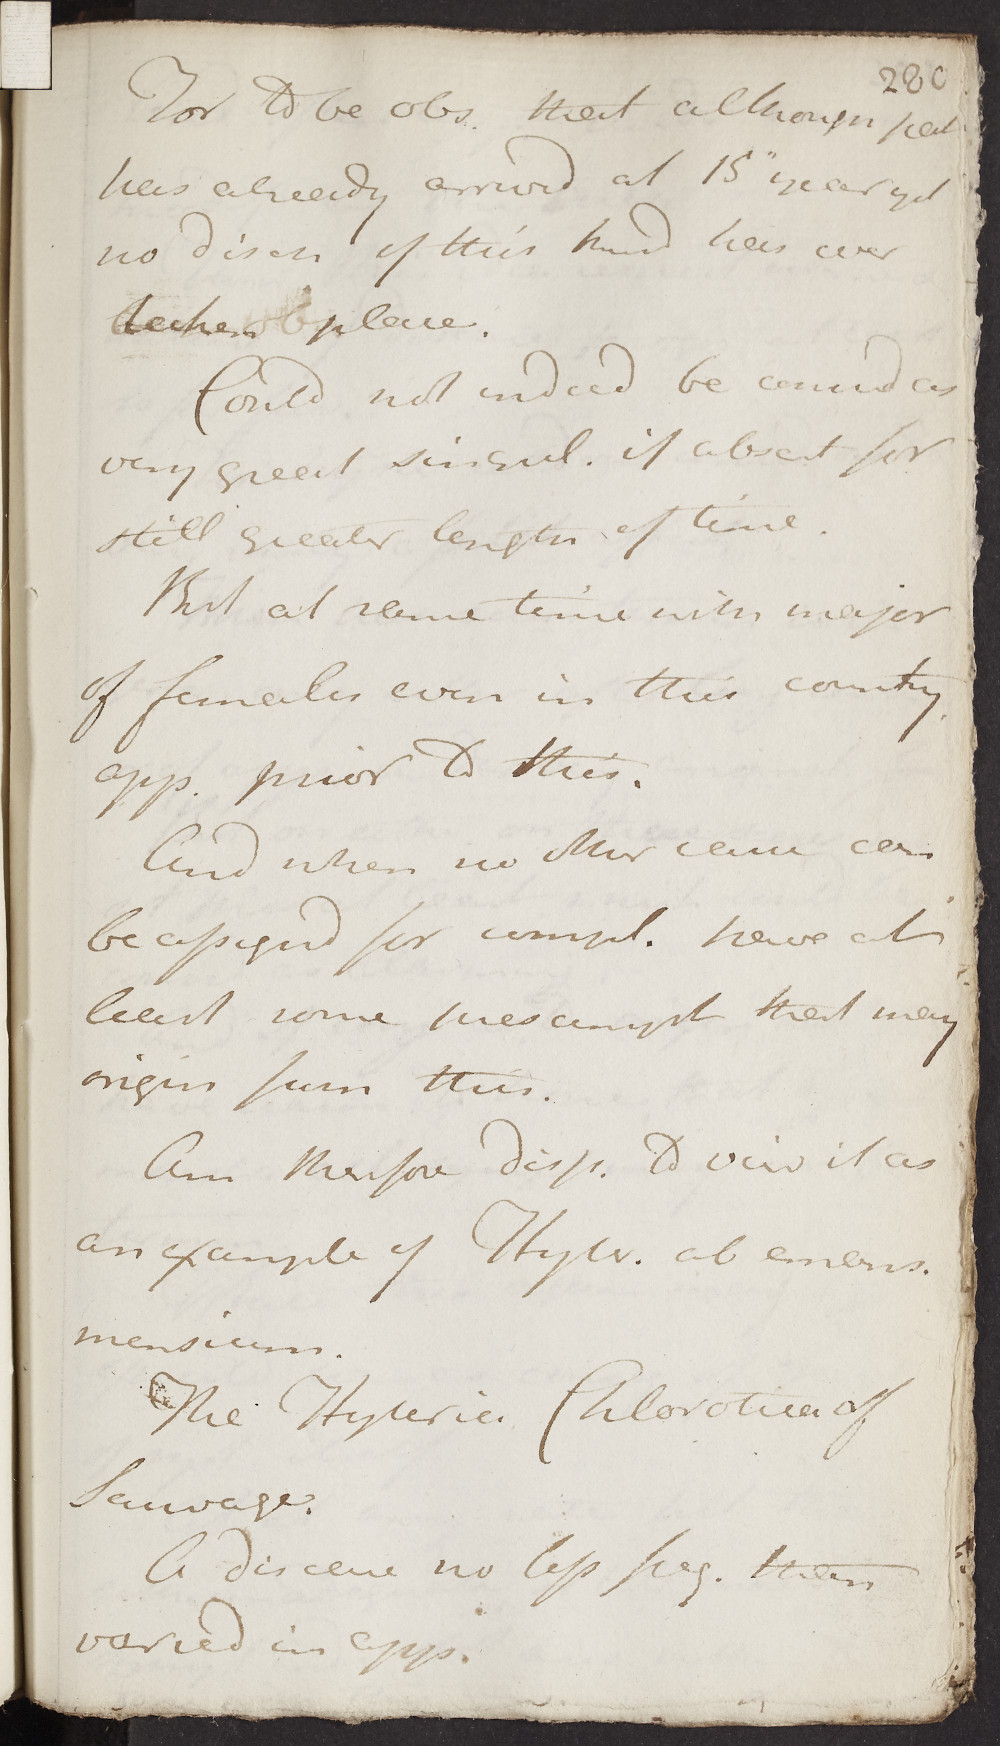 280
For to be obs. that although pat
has already arrived at 15th year yet
no disch of this kind has ever
taken place.
Could not indeed be consid as
very great singul. if absent for
still greater length of time.
But at same time with major
of females even in this country
app. prior to this.
And when no other cause can
be assignd for compl. have at
least some presumpt that may
origin from this.
Am therefore disp. to view it as
an example of Hyster. ab emens.
mensium.
The Hysteria Chlorotica of
Sauvage.
A disease no less freq. than
varied in app.